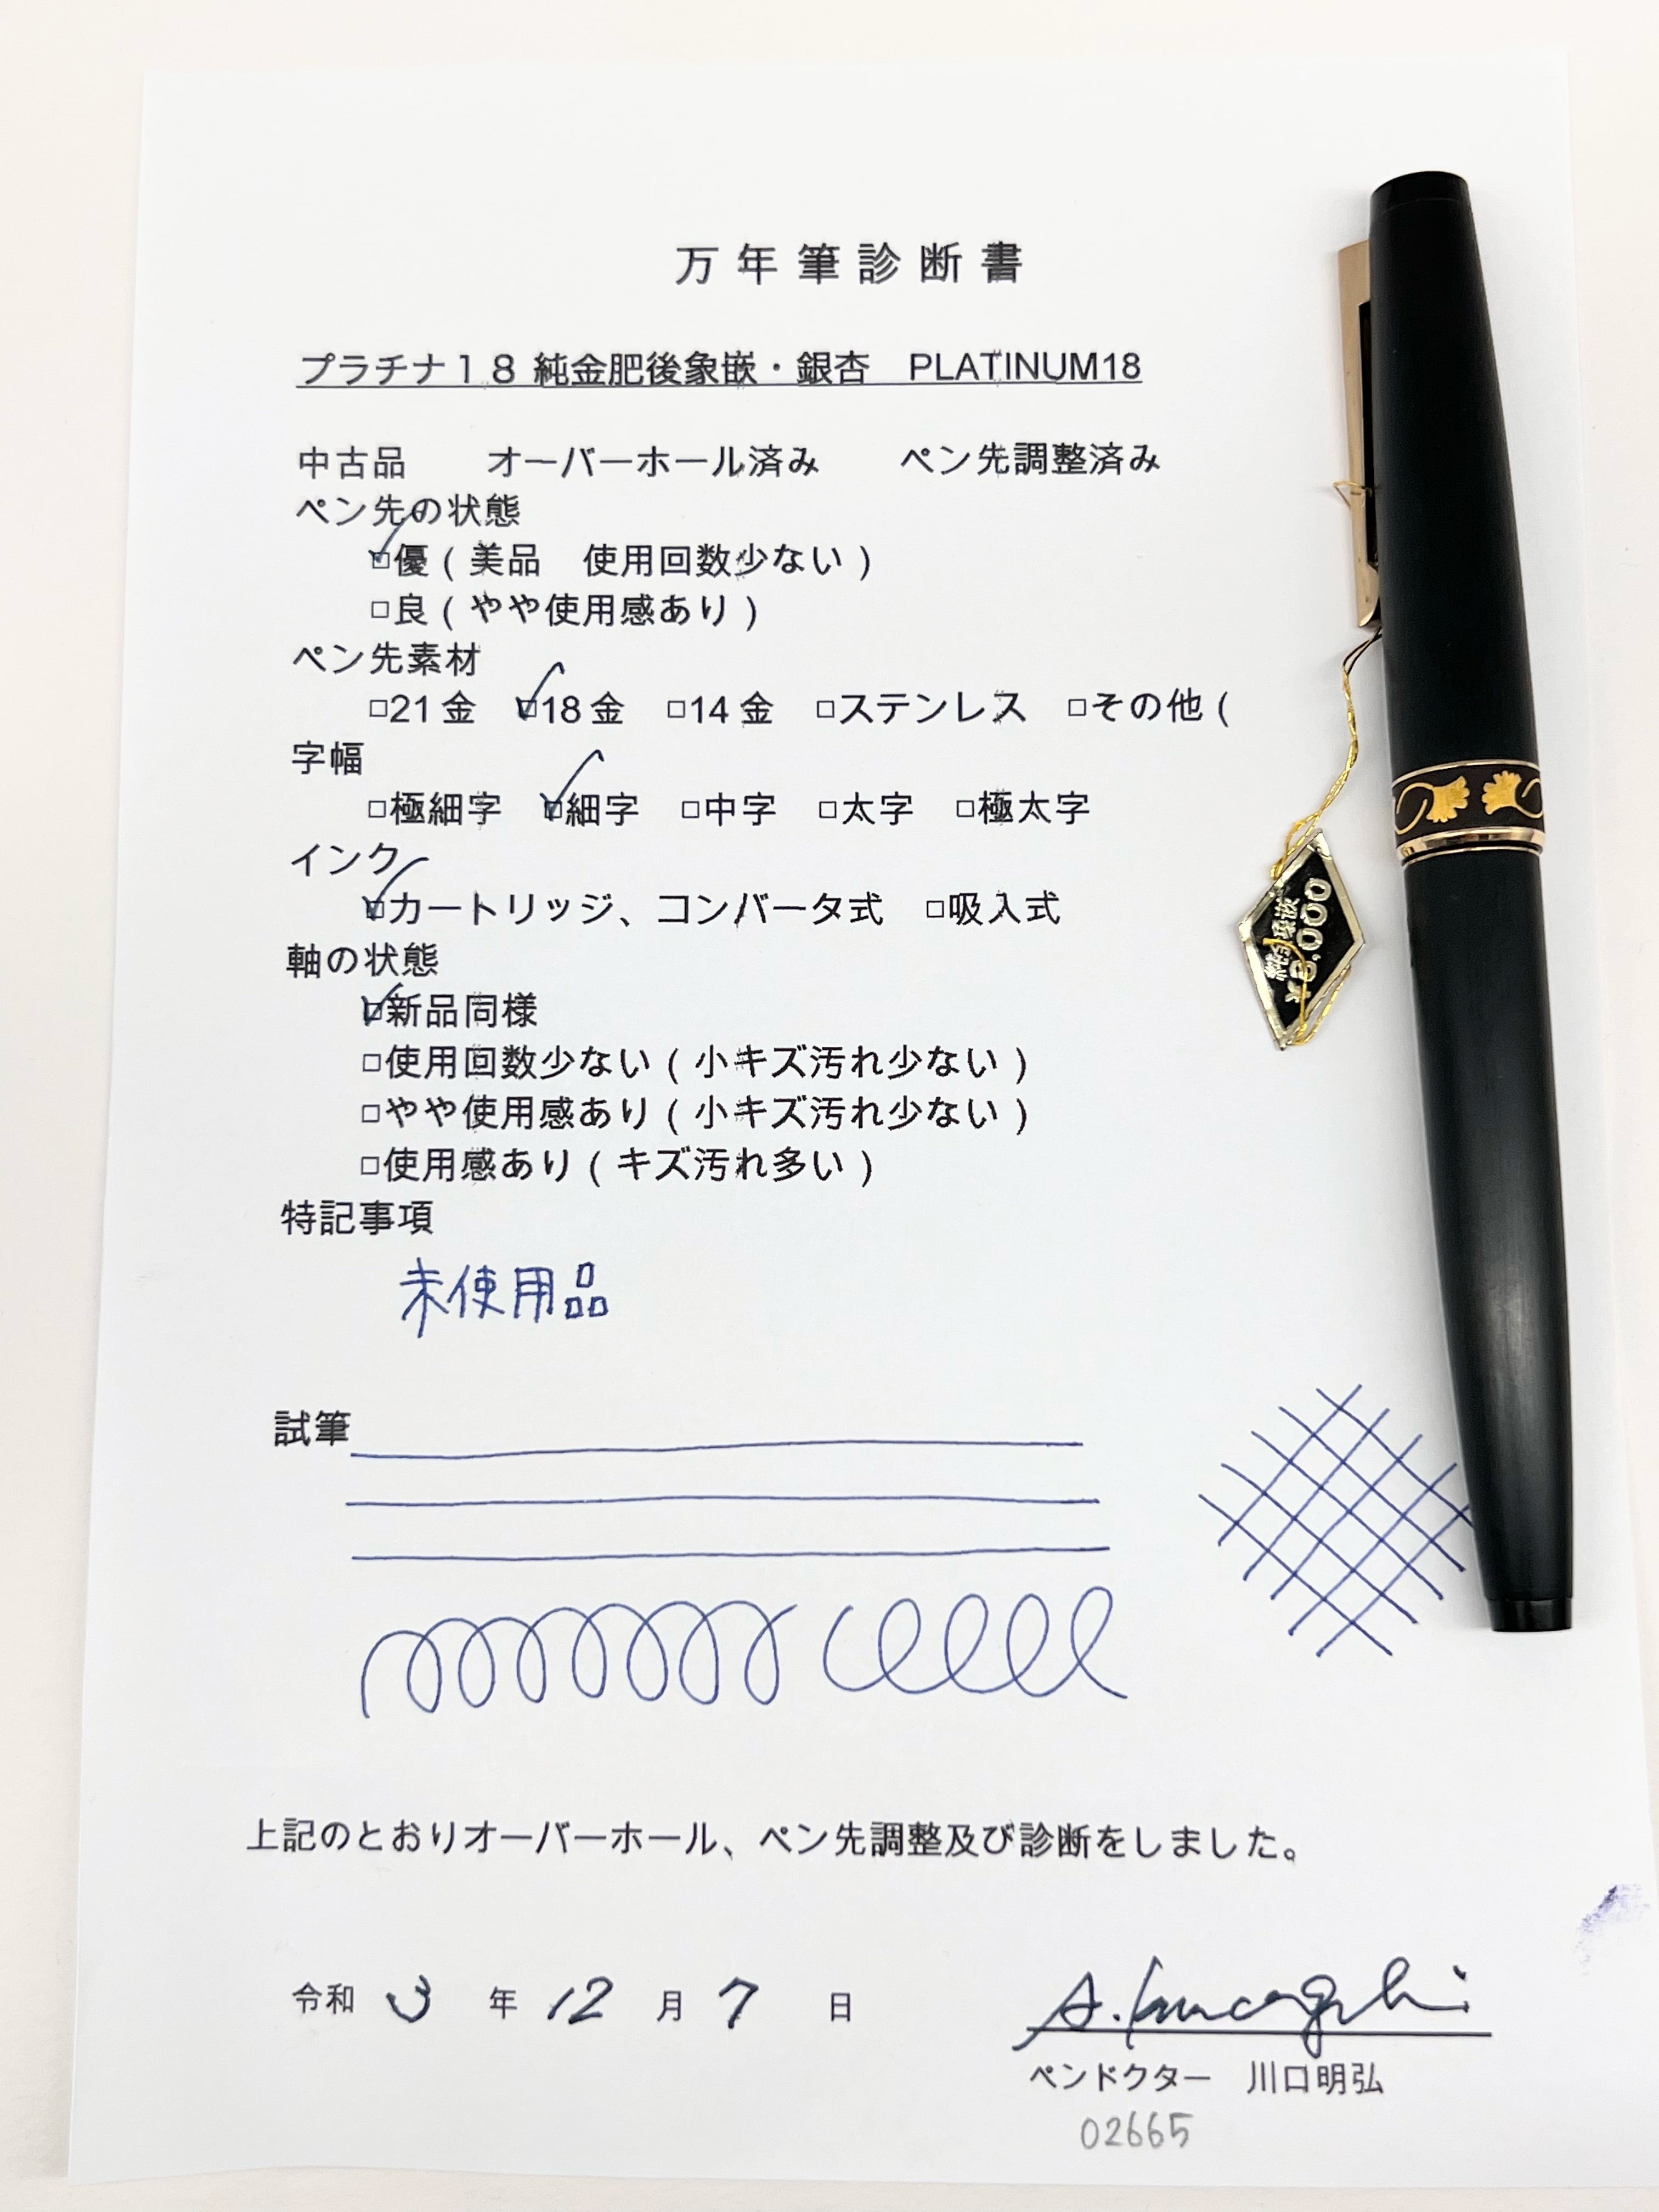 万年筆診断書
プラチナ18 純金肥後象嵌・銀杏 PLATINUM18
中古品 オーバーホール済み ペン先調整済み
ペン先の状態
☑優(美品 使用回数少ない)
□良(やや使用感あり)
ペン先素材
□21金 ☑18金 □14金 □ステンレス □その他(
字幅
□極細字 ☑細字 □中字 □太字 □極太字
インク
☑カートリッジ、コンバータ式 □吸入式
軸の状態
☑新品同様
□使用回数少ない(小キズ汚れ少ない)
□やや使用感あり(小キズ汚れ少ない)
□使用感あり(キズ汚れ多い)
特記事項
未使用品
試筆
上記のとおりオーバーホール、ペン先調整及び診断をしました。
令和 3 年 12 月 7 日
ペンドクター 川口明弘
02665